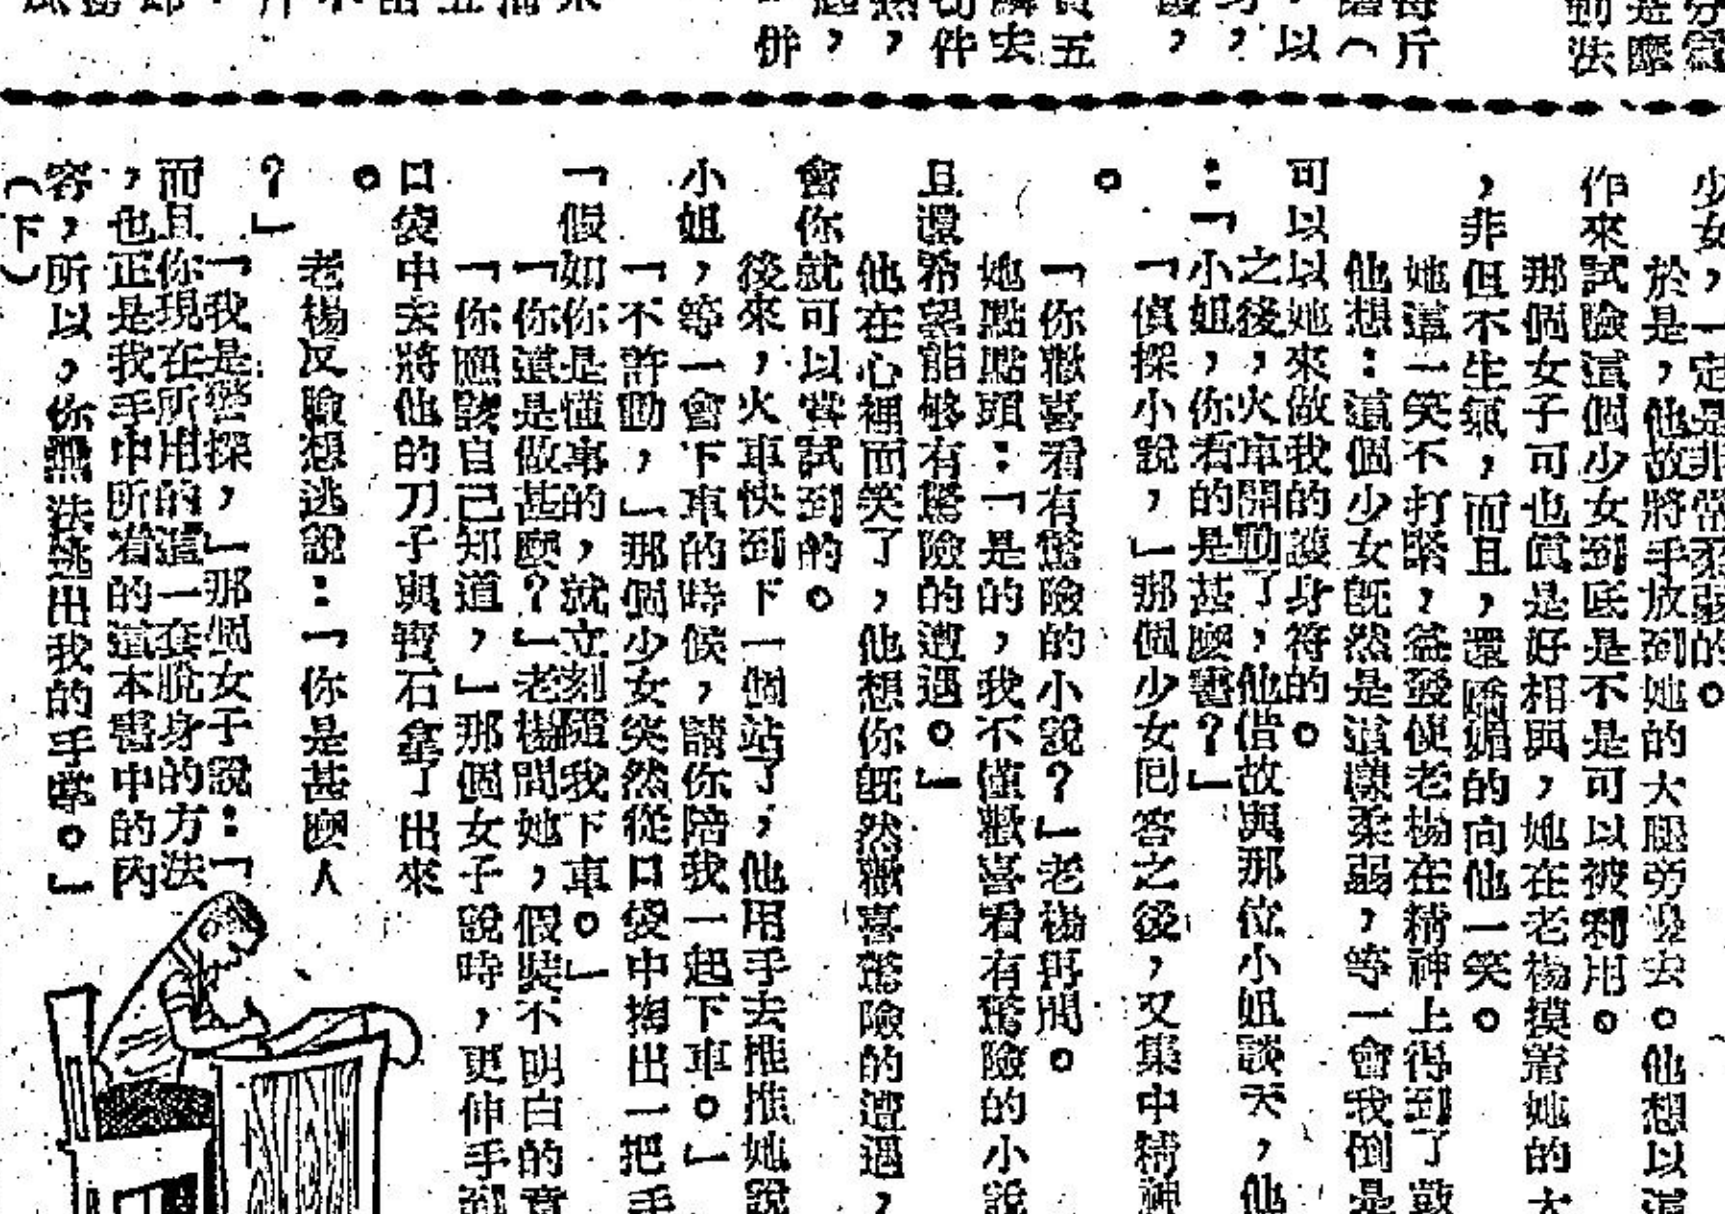 每斤
（
，以
，
，
五
去
件
，
，
併
法
少女，一定是非常柔弱的。
於是，他故將手放到她的大腿旁邊去。他想以這
作來試驗這個少女到底是不是可以被利用。
那個女子可也真是好相與，她在老楊摸着她的大
，非但不生氣，而且，還嬌媚的向他一笑。
她這一笑不打緊，益發使老楊在精神上得到了鼓
他想：這個少女旣然是這樣柔弱，等一會我倒是
可以以她來做我的護身符的。
之後，火車開動了，他借故與那位小姐談天，他
：「小姐，你看的是甚麽書？」
「偵探小說，」那個少女囘答之後，又集中精神
。
「你歡喜看有驚險的小說？」老楊再問。
她點點頭：「是的，我不懂歡喜看有驚險的小說
且還希望能够有驚險的遭遇。」
他在心裡面笑了，他想你旣然歡喜驚險的遭遇，
會你就可以嘗試到的。
後來，火車快到下一個站了，他用手去推推她說
小姐，等一會下車的時候，請你陪我一起下車。」
「不許動，」那個少女突然從口袋中掏出一把手
「假如你是懂事的，就立刻隨我下車。」
「你這是做甚麽？」老楊問她，假裝不明白的意
「你應該自己知道，」那個女子說時，更伸手到
口袋中去將他的刀子與寶石拿了出來
。
老楊反臉想逃說：「你是甚麽人
？」
「我是警探，」那個女子說：「
而且你現在所用的這一套脫身的方法
，也正是我手中所看的這本書中的內
容，所以，你無法逃出我的手掌。」
（下）